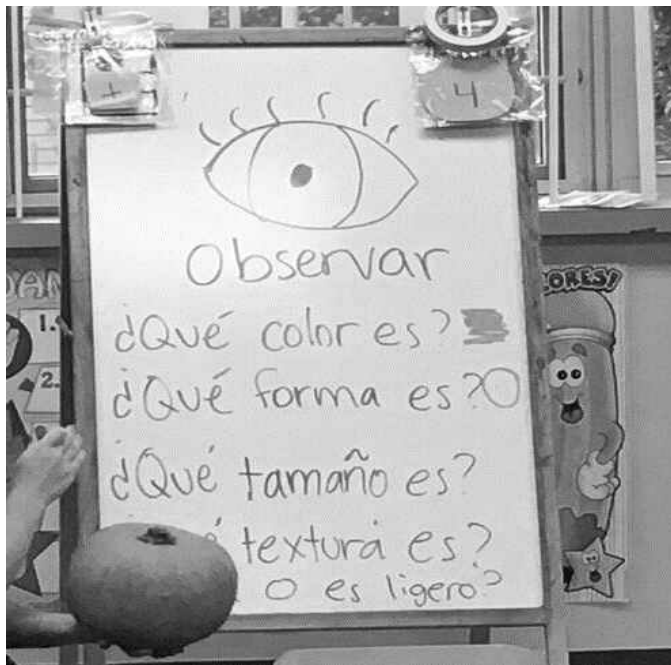 +
4
Observar
¿Qué color es?
¿Qué forma es?
¿Qué tamaño es?
textura es?
O es ligero?
ORES!
1.
2.